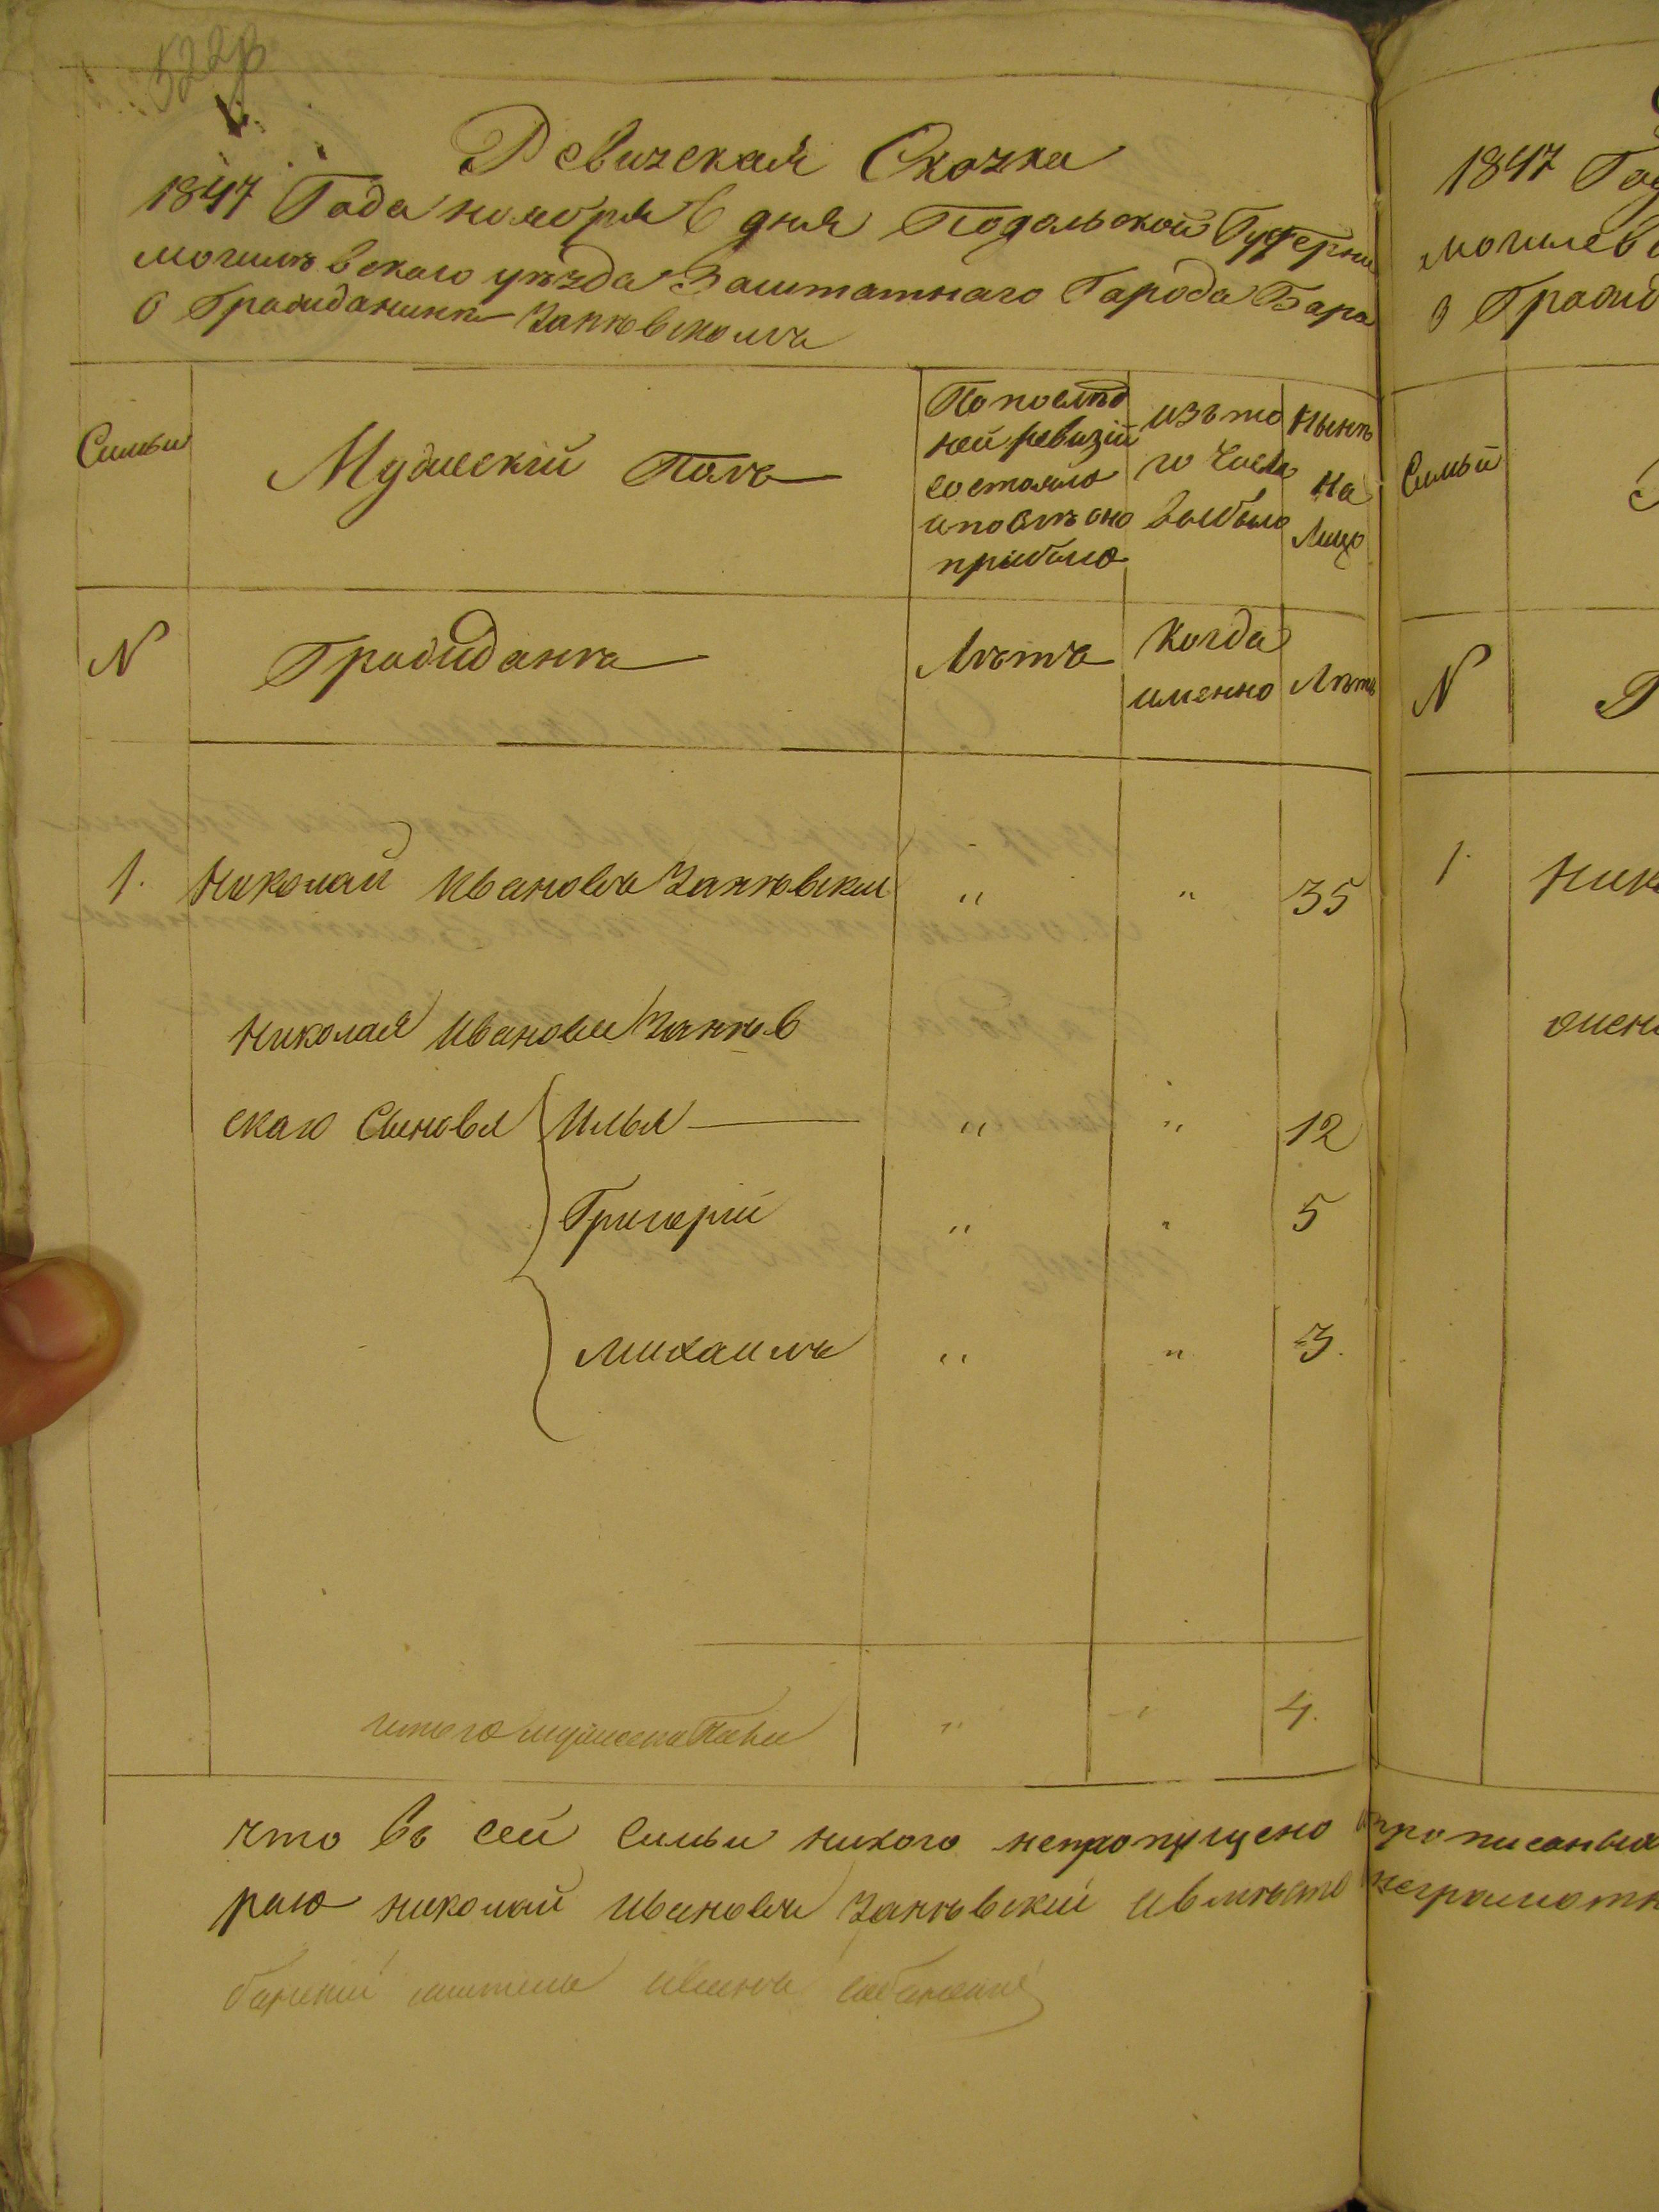 522
Ревизская Сказка
1847 Года ноября 6 дня Подольской Губерни
могилевскаго уезда Заштатнаго Города Бара
о Гражданине Занковскомъ
Семьи
Мужескій Полъ
По послѣд
ней ревизіи
состояло
и после оно
прибыло
изъ то
го числа
выбыло
Нынѣ
на
Лицо
N
Гражданъ
Лѣта
Когда
именно
Лѣта
1. Николай Ивановъ Занковски " " 35
Николая Иванова Занков
скаго Сыновя Илья " " 12
Григорій " " 5
Михаилъ " " 3.
итого мужеска Пола " " 4.
что въ сей семьи никого непропущено
раю николай Ивановъ Занковскій
1847 Год
могилев
о Гражд
Семьи
N
1. Ник